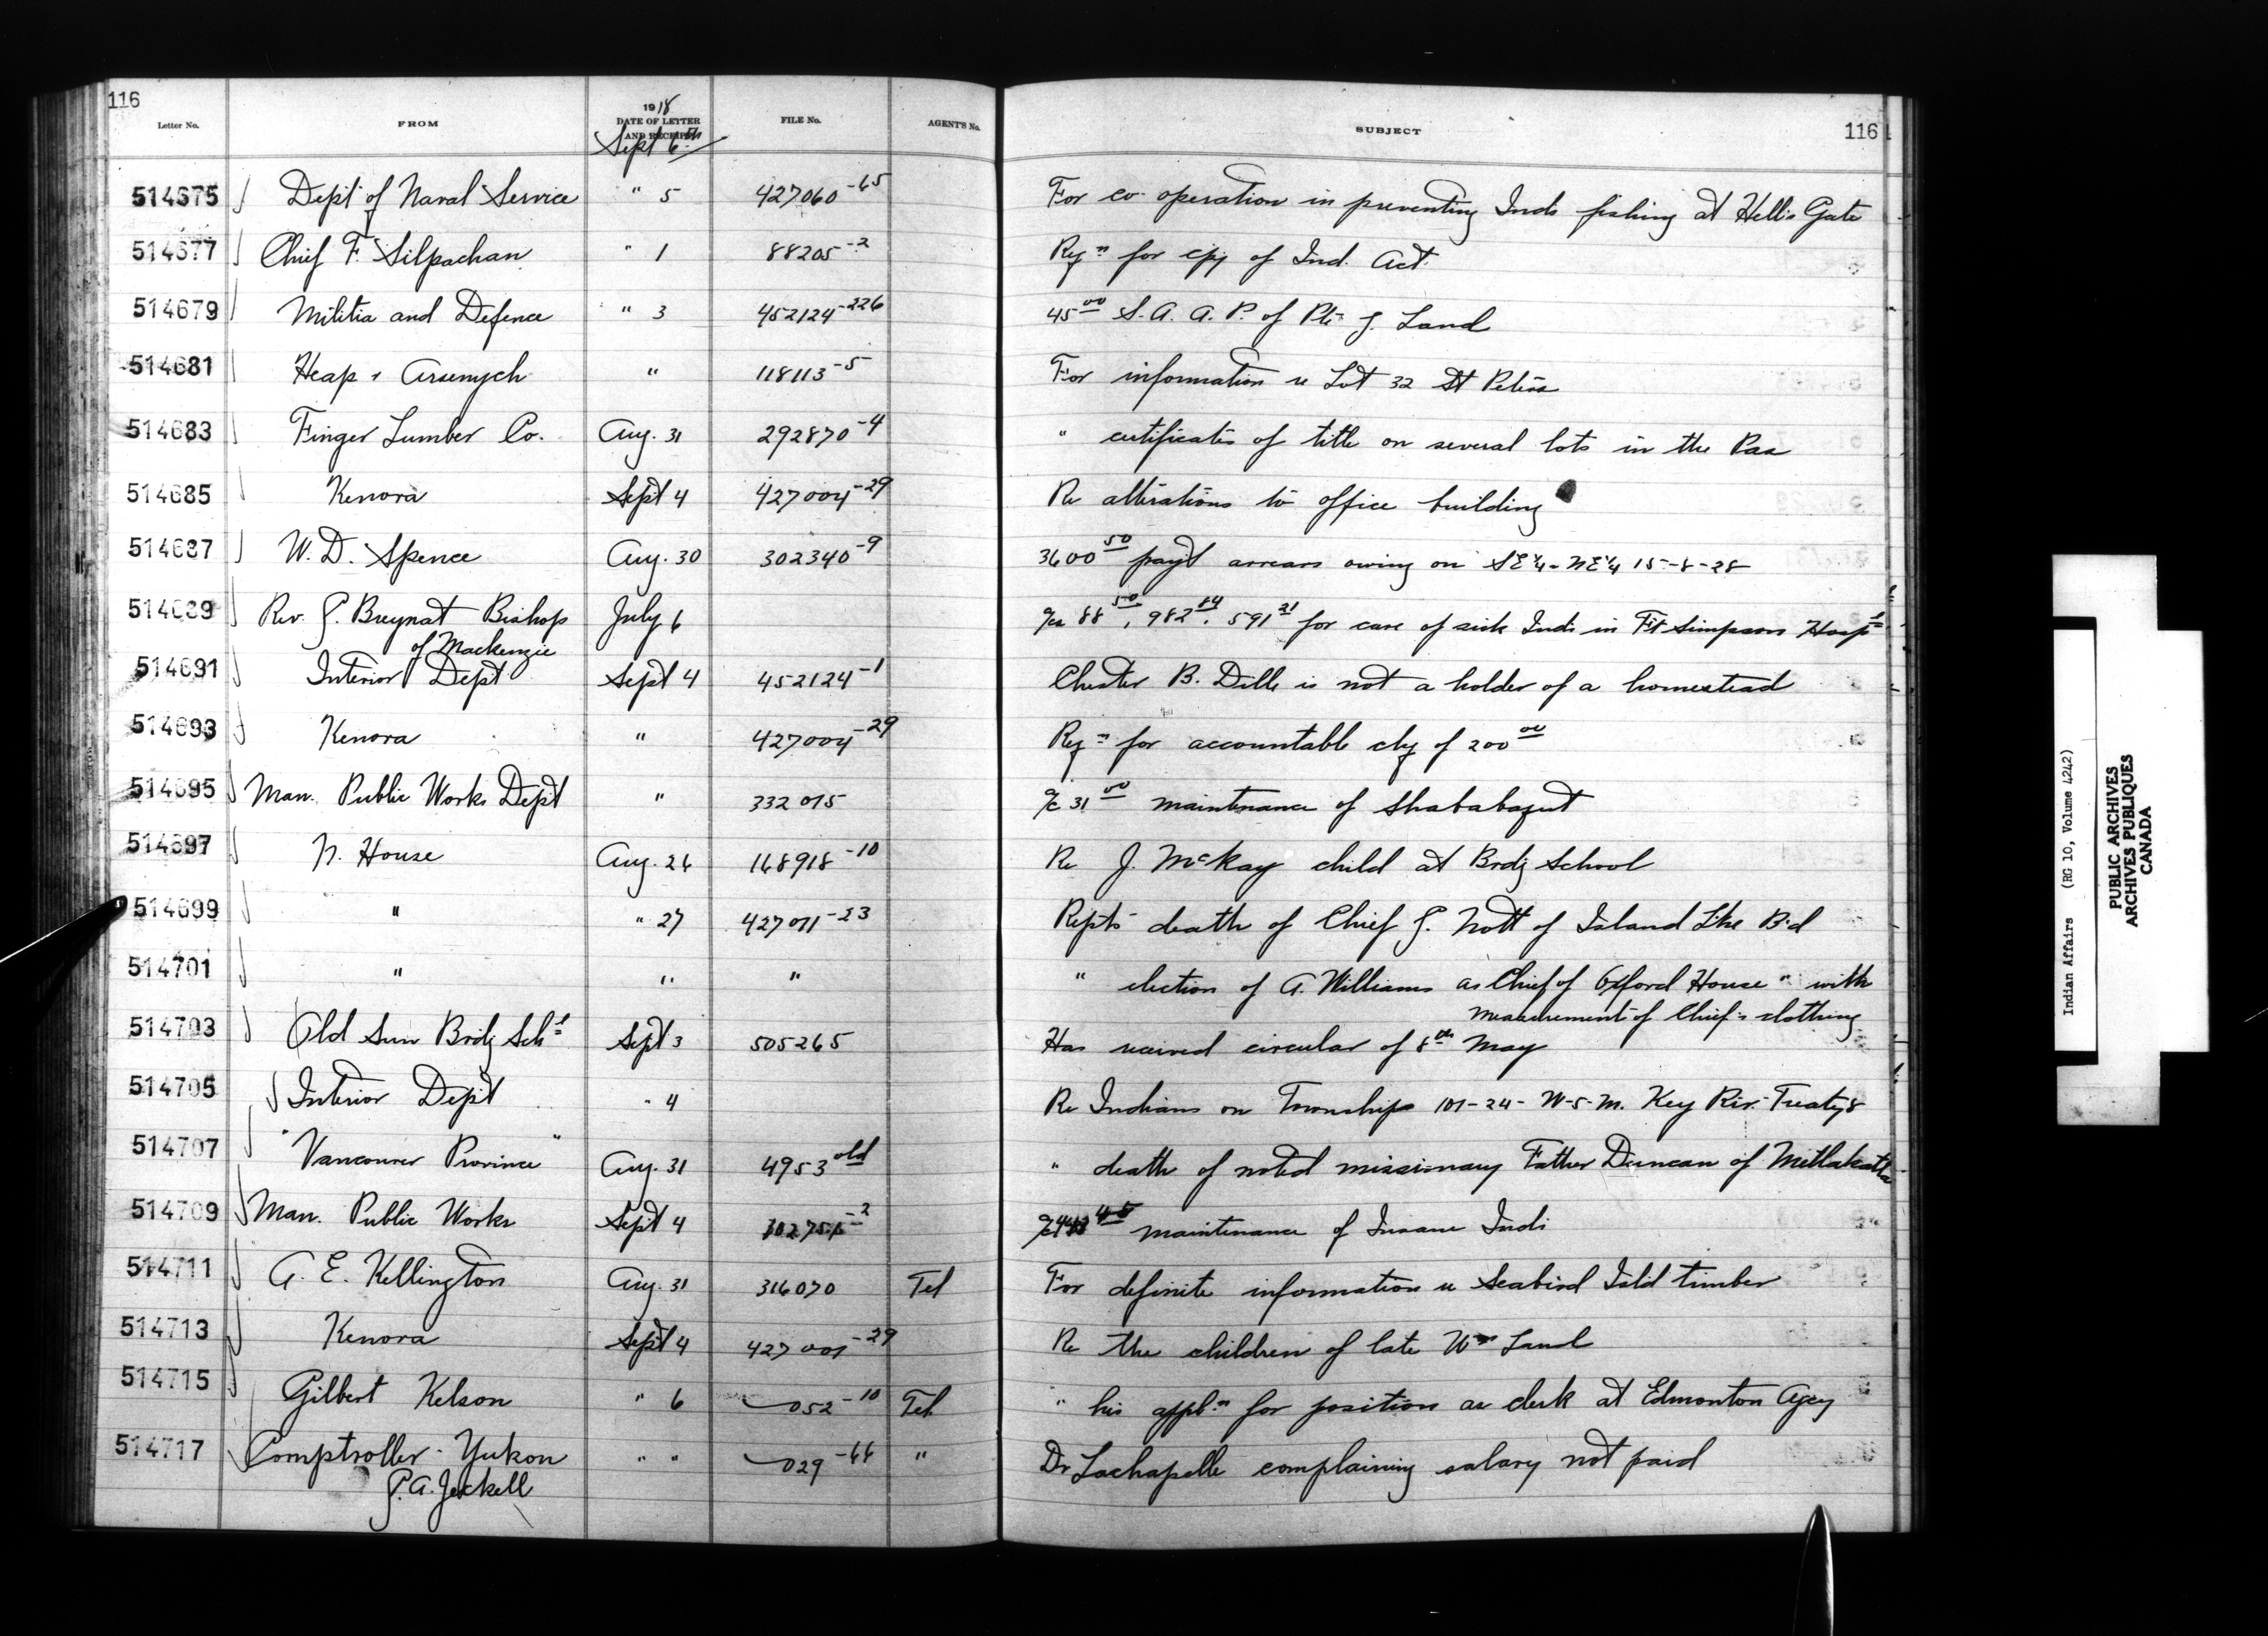 116
Letter No. FROM 1918 DATE OF LETTER AND RECEIPT FILE No. AGENT'S No. SUBJECT 116
Sept 6th
514675 Dept of Naval Service " 5 427060-65 For co operation in preventing Inds fishing at Hell's Gate
514677 Chief F. Silpachan " 1 88205-2 Reqn for cpy of Ind. Act.
514679 Militia and Defence " 3 452124-226 45 00 S. A. A. P. of Pte J. Land
514681 Heap & Arsenych " 118113-5 For information re Lot 32 St Peters
514683 Finger Lumber Co. Aug. 31 292870-4 " certificates of title on several lots in the Pas
514685 Kenora Sept 4 427004-29 Re alterations to office building
514687 W. D. Spence Aug. 30 302340-9 3600 50 payt arrears owing on SE¼ - NE¼ 15-8-28
514689 Rev. G. Breynat Bishop July 6 a/cs 88 50, 982 84, 591 21 for care of sick Inds in Ft Simpson Hospl
of Mackenzie
514691 Interior Dept Sept 4 452124-1 Chester B. Dills is not a holder of a homestead
514693 Kenora " 427004-29 Reqn for accountable chq of 200 00
514695 Man. Public Works Dept " 332015 a/c 31 00 maintenance of Shababaqut
514697 N. House Aug. 26 168918-10 Re J. McKay child at Brdg School
514699 " " 27 427011-23 Repts death of Chief G. Nott of Island Lke Bd
514701 " " " " election of A. Williams as Chief of Oxford House " with
measurement of Chief's clothing
514703 Old Sun Brdg Schl Sept 3 505265 Has received circular of 8th May
514705 Interior Dept " 4 Re Indians on Townships 101-24-W-5-M. Key Riv. Treaty 8
514707 "Vancouver Province" Aug. 31 4953 old " death of noted missionary Father Duncan of Metlakatla
514709 Man. Public Works Sept 4 a/c maintenance of Insane Inds
514711 A. E. Kellington Aug. 31 316070 Tel For definite information re Seabird Isld timber
514713 Kenora Sept 4 427001-29 Re the children of late Wm Land
514715 Gilbert Kelson " 6 052-10 Tel " his appln for position as clerk at Edmonton Agcy
514717 Comptroller - Yukon " " 029-66 " Dr Lachapelle complaining salary not paid
G. A. Jeckell
Indian Affairs (RG 10, Volume 4242)
PUBLIC ARCHIVES
ARCHIVES PUBLIQUES
CANADA